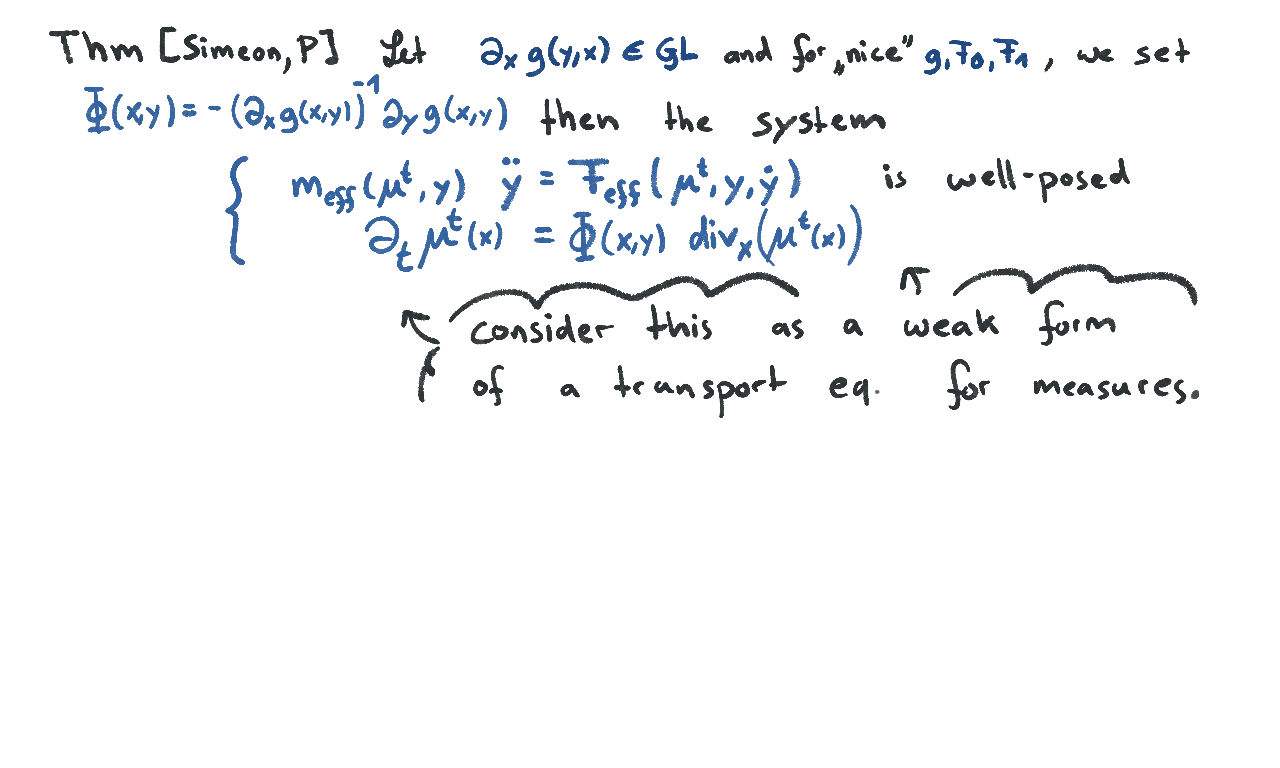 Thm [Simeon, P] Let ∂ₓ g(y,x) ∈ GL and for „nice" g, F₀, F₁, we set
Φ(x,y) = - (∂ₓg(x,y))⁻¹ ∂ᵧ g(x,y) then the system
{ m_eff(μᵗ, y) ÿ = F_eff(μᵗ, y, ẏ) is well-posed
∂ₜ μᵗ(x) = Φ(x,y) divₓ(μᵗ(x))
consider this as a weak form
of a transport eq. for measures.